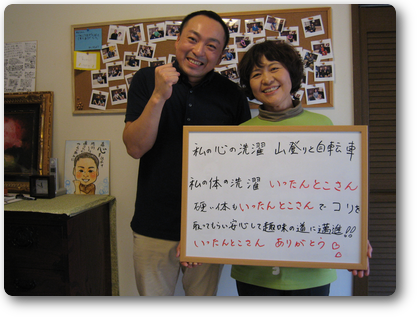 私の心の洗濯 山登りと自転車
私の体の洗濯 いったんとこさん
硬い体もいったんとこさんでコリを
取ってもらい安心して趣味の道に邁進!!
いったんとこさん ありがとう